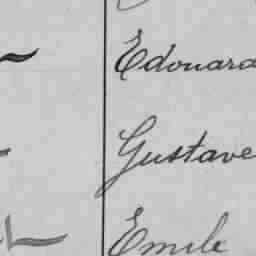 Edouard
Gustave
Emile